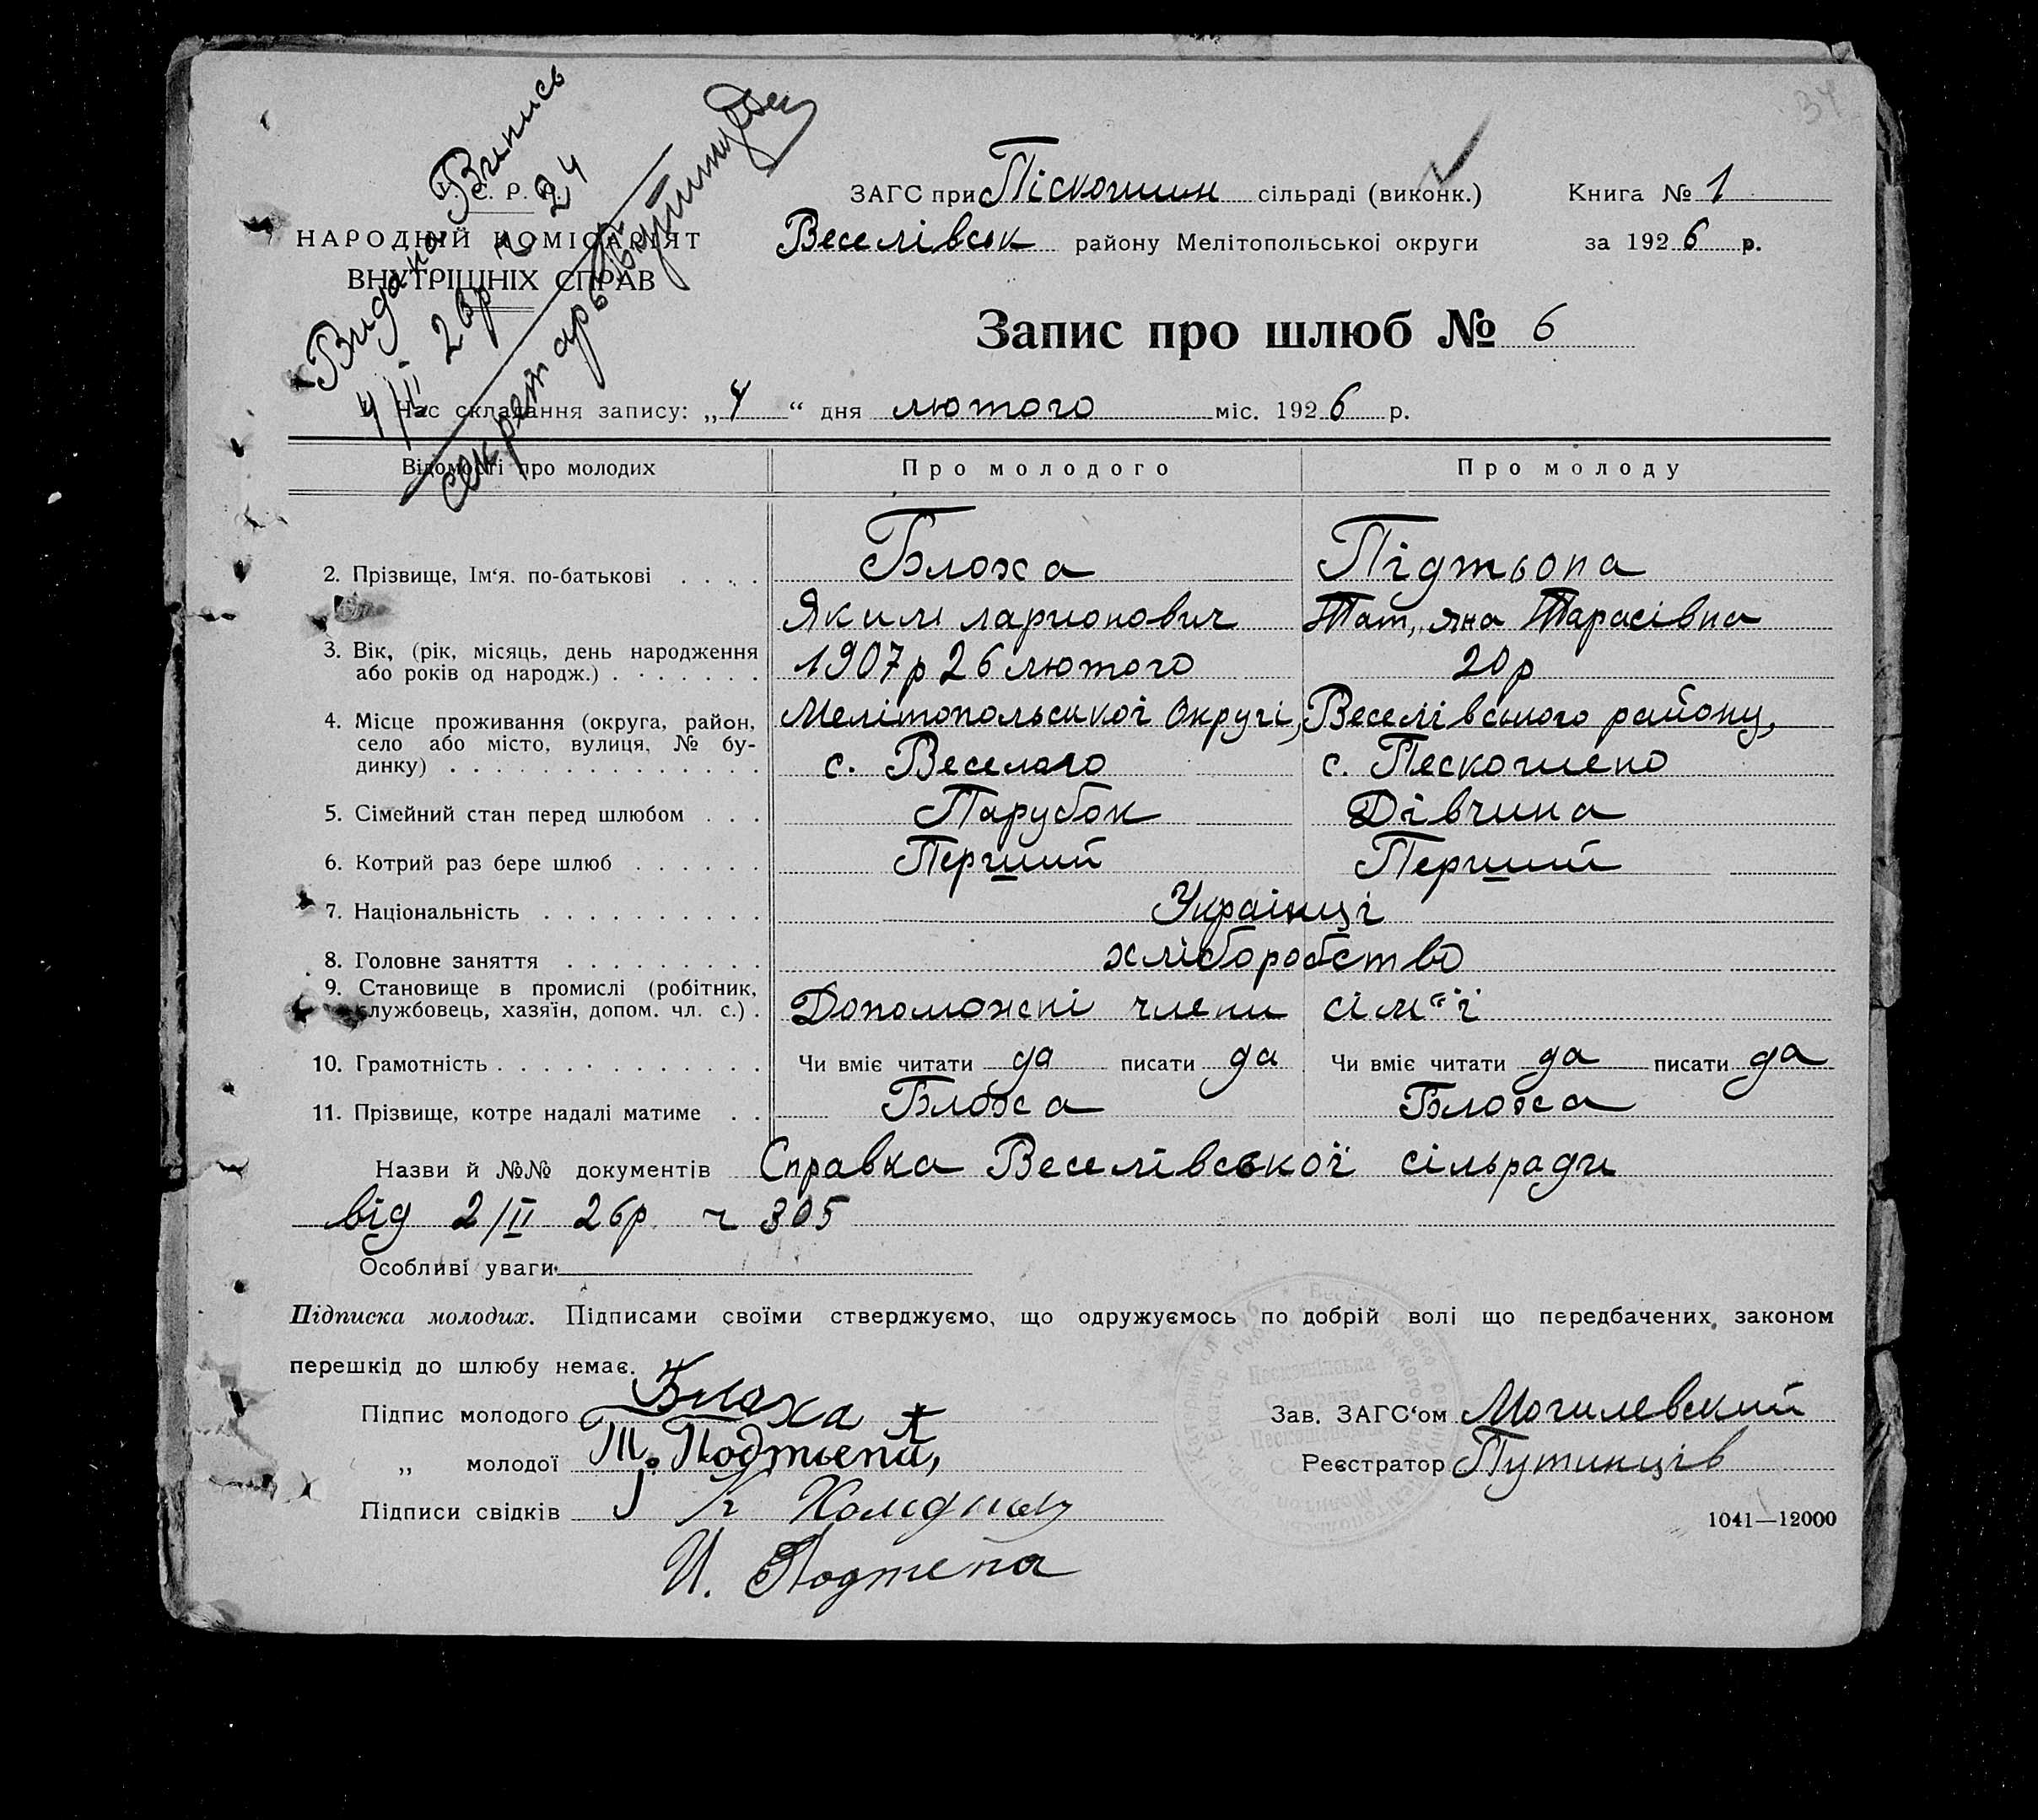 34
Видана Випись
4/II 26р ч 24
Секретарь
У. С. Р. Р.
НАРОДНІЙ КОМІСАРІЯТ
ВНУТРІШНІХ СПРАВ
ЗАГС при Піскошин сільраді (виконк.) Книга № 1
Веселівськ району Мелітопольської округи за 1926 р.
Запис про шлюб № 6
1. Час складання запису: „4“ дня лютого міс. 1926 р.
Відомості про молодих Про молодого Про молоду
2. Прізвище, Ім‘я. по-батькові . . . . Блоха Підтьопа
Яким ларионович Тат„яна Тарасівна
3. Вік, (рік, місяць, день народження
або років од народж.) . . . . . . . 1907р 26 лютого 20р
4. Місце проживання (округа, район, Мелітопольської Округі, Веселівського району,
село або місто, вулиця, № бу-
динку) . . . . . . . . . . . . . . с. Веселого с. Пескошено
5. Сімейний стан перед шлюбом . . . Парубок Дівчина
6. Котрий раз бере шлюб . . . . . . Перший Перший
7. Національність . . . . . . . . . . Українці
8. Головне заняття . . . . . . . . . хліборобство
9. Становище в промислі (робітник,
службовець, хазяїн, допом. чл. с.) . Допоможні члени сім"ї
10. Грамотність . . . . . . . . . . . . Чи вміє читати да писати да Чи вміє читати да писати да
11. Прізвище, котре надалі матиме . . Блоха Блоха
Назви й №№ документів Справка Веселівської сільради
від 2/II 26р. ч 305
Особливі уваги
Підписка молодих. Підписами своїми стверджуємо, що одружуємось по добрій волі що передбачених законом
перешкід до шлюбу немає.
Підпис молодого Блоха Зав. ЗАГС‘ом Могилевский
„ молодої Т. Подтьепа, Реєстратор Путинців
Підписи свідків
1041—12000
И. Подтепа